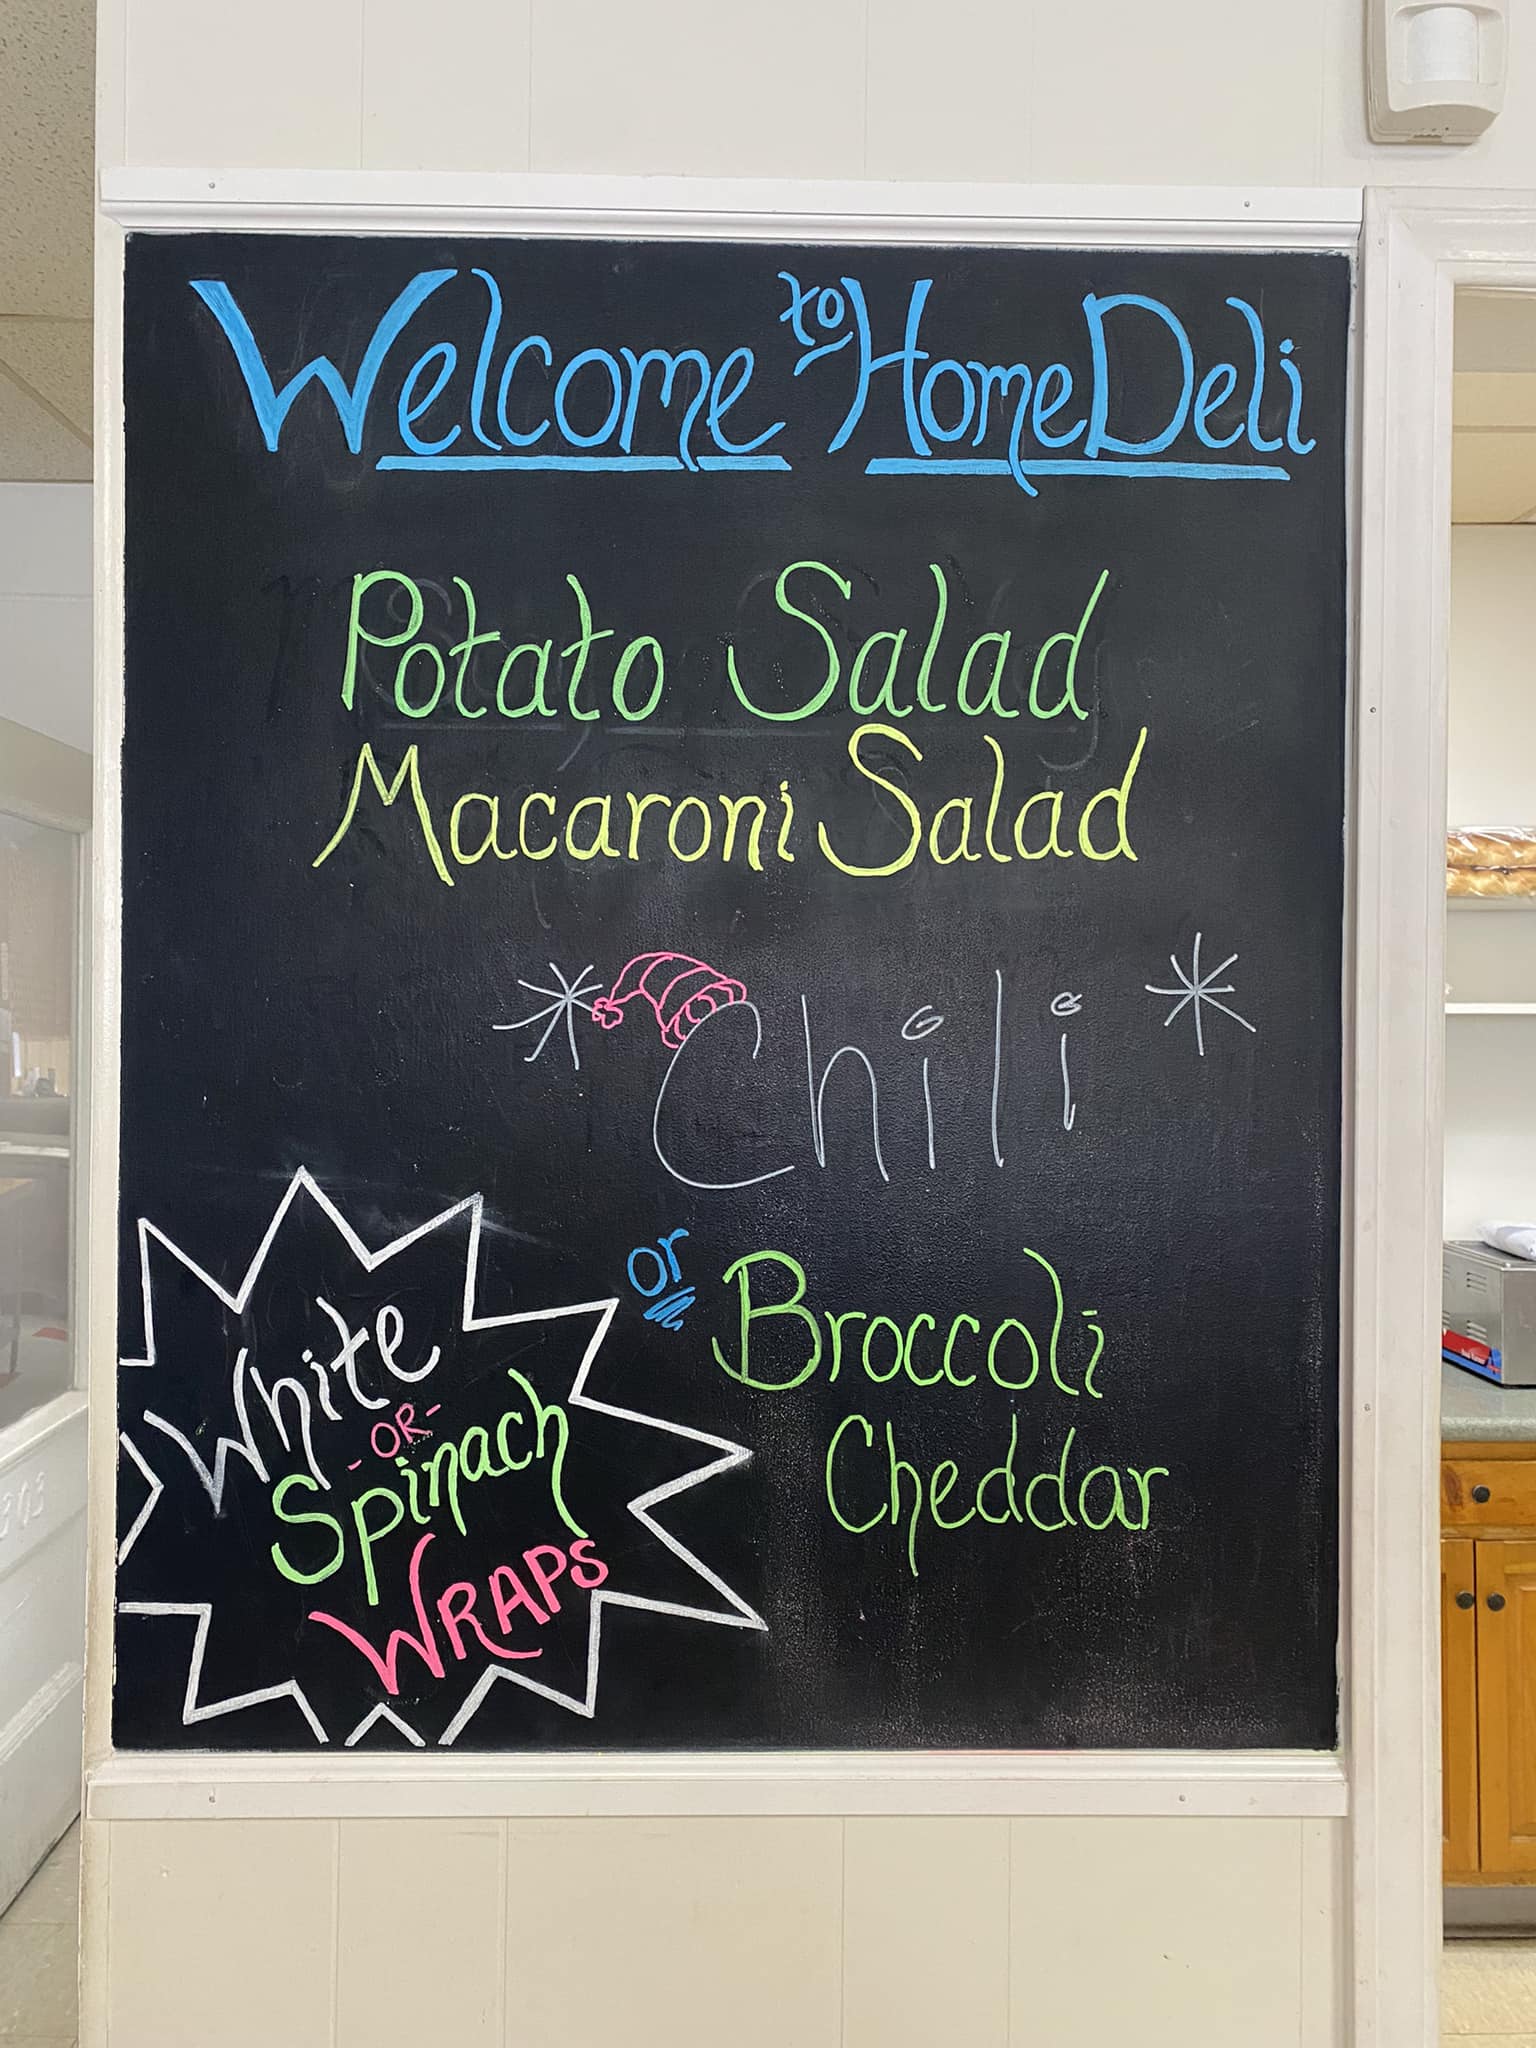 Welcome to Home Deli
Potato Salad
Macaroni Salad
Chili
or Broccoli
Cheddar
White
-OR-
Spinach
WRAPS